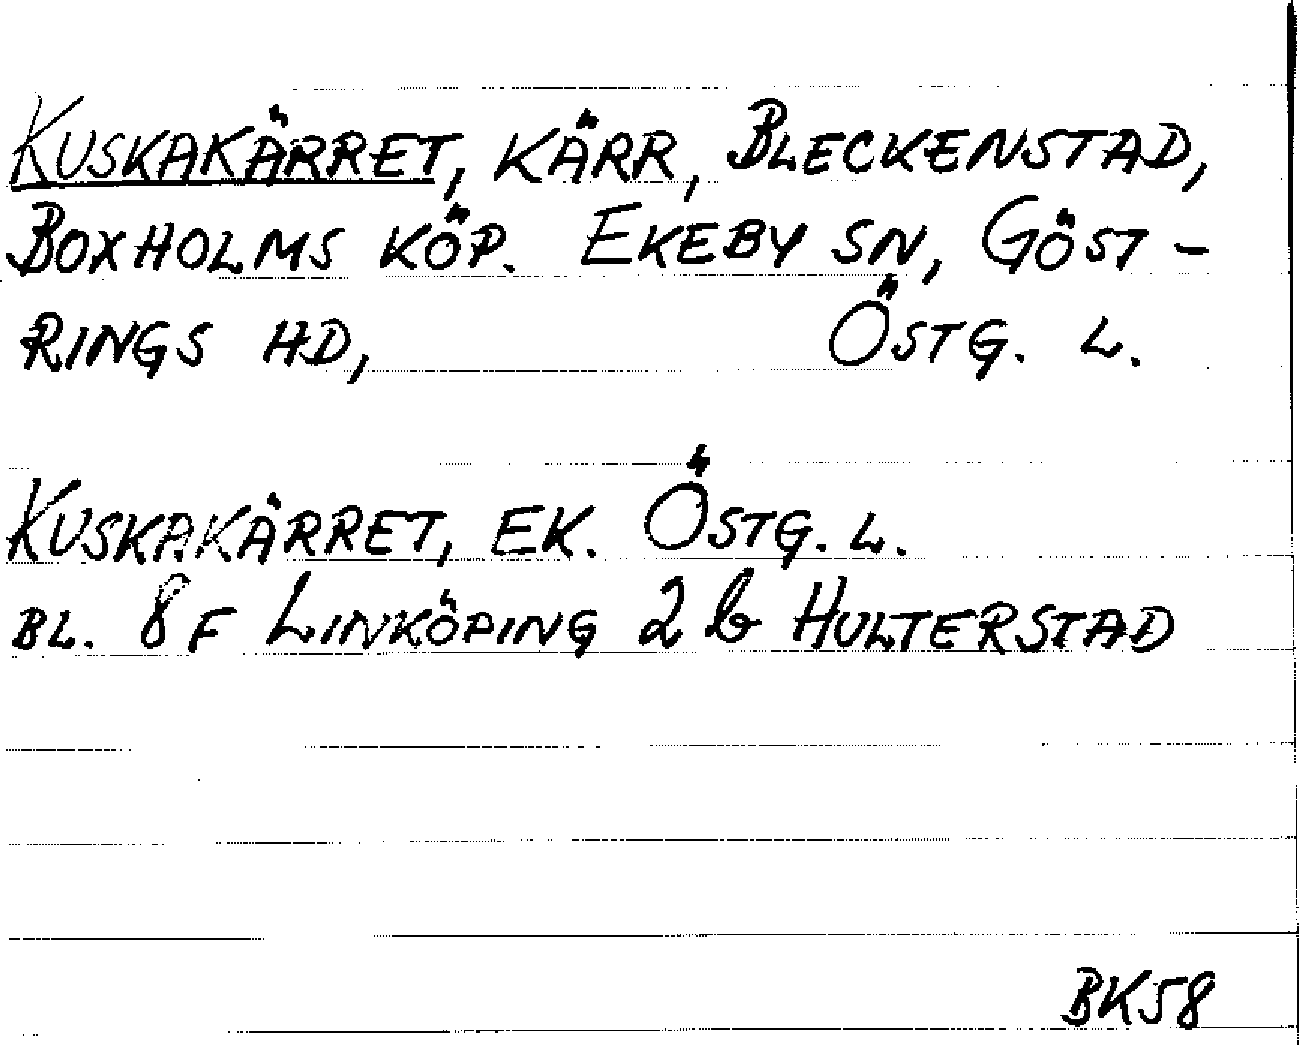 KUSKAKÄRRET, KÄRR, BLECKENSTAD,
BOXHOLMS KÖP. EKEBY SN, GÖST-
RINGS HD, ÖSTG. L.
KUSKAKÄRRET, EK. ÖSTG. L.
BL. 8 F LINKÖPING 2 b HULTERSTAD
BK58